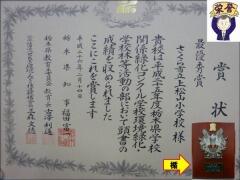 賞状
最優秀賞
さくら市立上松山小学校 様
貴校は平成二十五年度栃木県学校
関係緑化コンクール学校環境緑化
学校林等活動の部において頭書の
成績を収められました
ここにこれを賞します
平成二十六年二月十四日
栃木県知事 福田富一
栃木県教育委員会教育長 古澤利通
楯